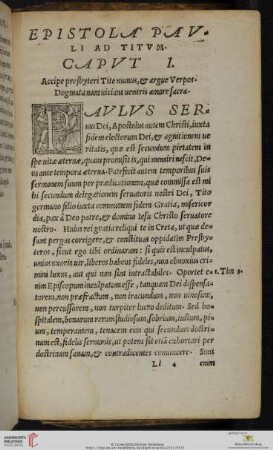 EPISTOLA PAV-
LI AD TITVM.
CAPVT I.
Accipe presbyteri Tite munus, & argue Verpos.
Dogmata nam viciant ventris amore sacra.
PAVLVS SER-
uus Dei, Apostolus autem Christi, iuxta
fidem electorum Dei, & agnitionem ve
ritatis, quæ est secundum pietatem in
spē vitæ æternæ, quam promisit is, qui mentiri nescit, De⁹
ante tempora æterna. Patefecit autem temporibus suis
sermonem suum per prædicationem, quæ commissa est mi
hi secundum delegationem seruatoris nostri Dei, Tito
germano filio iuxta communem fidem Gratia, misericor
dia, pax à Deo patre, & domino Iesu Christo seruatore
nostro. Huius rei gratia reliqui te in Creta, ut quæ de-
sunt pergas corrigere, & constituas oppidatim Presby-
teros, sicut ego tibi ordinaram: si quis est inculpatus,
unius uxoris vir, liberos habens fideles, non obnoxios cri
mini luxus, aut qui non sint intractabiles. Oportet e- 1. Tim 3.
nim Episcopum inculpatum esse, tanquam Dei dispensa-
torem, non præfractum, non iracundum, non vinosum,
non percussorem, non turpiter lucro deditum. Sed ho-
spitalem, bonarum rerum studiosum, sobrium, iustum, pi-
um, temperantem, tenacem eius qui secundum doctri-
nam est, fidelis sermonis, ut potens sit etiā exhortari per
doctrinam sanam, & contradicentes conuincere. Sunt
Ll 4 enim